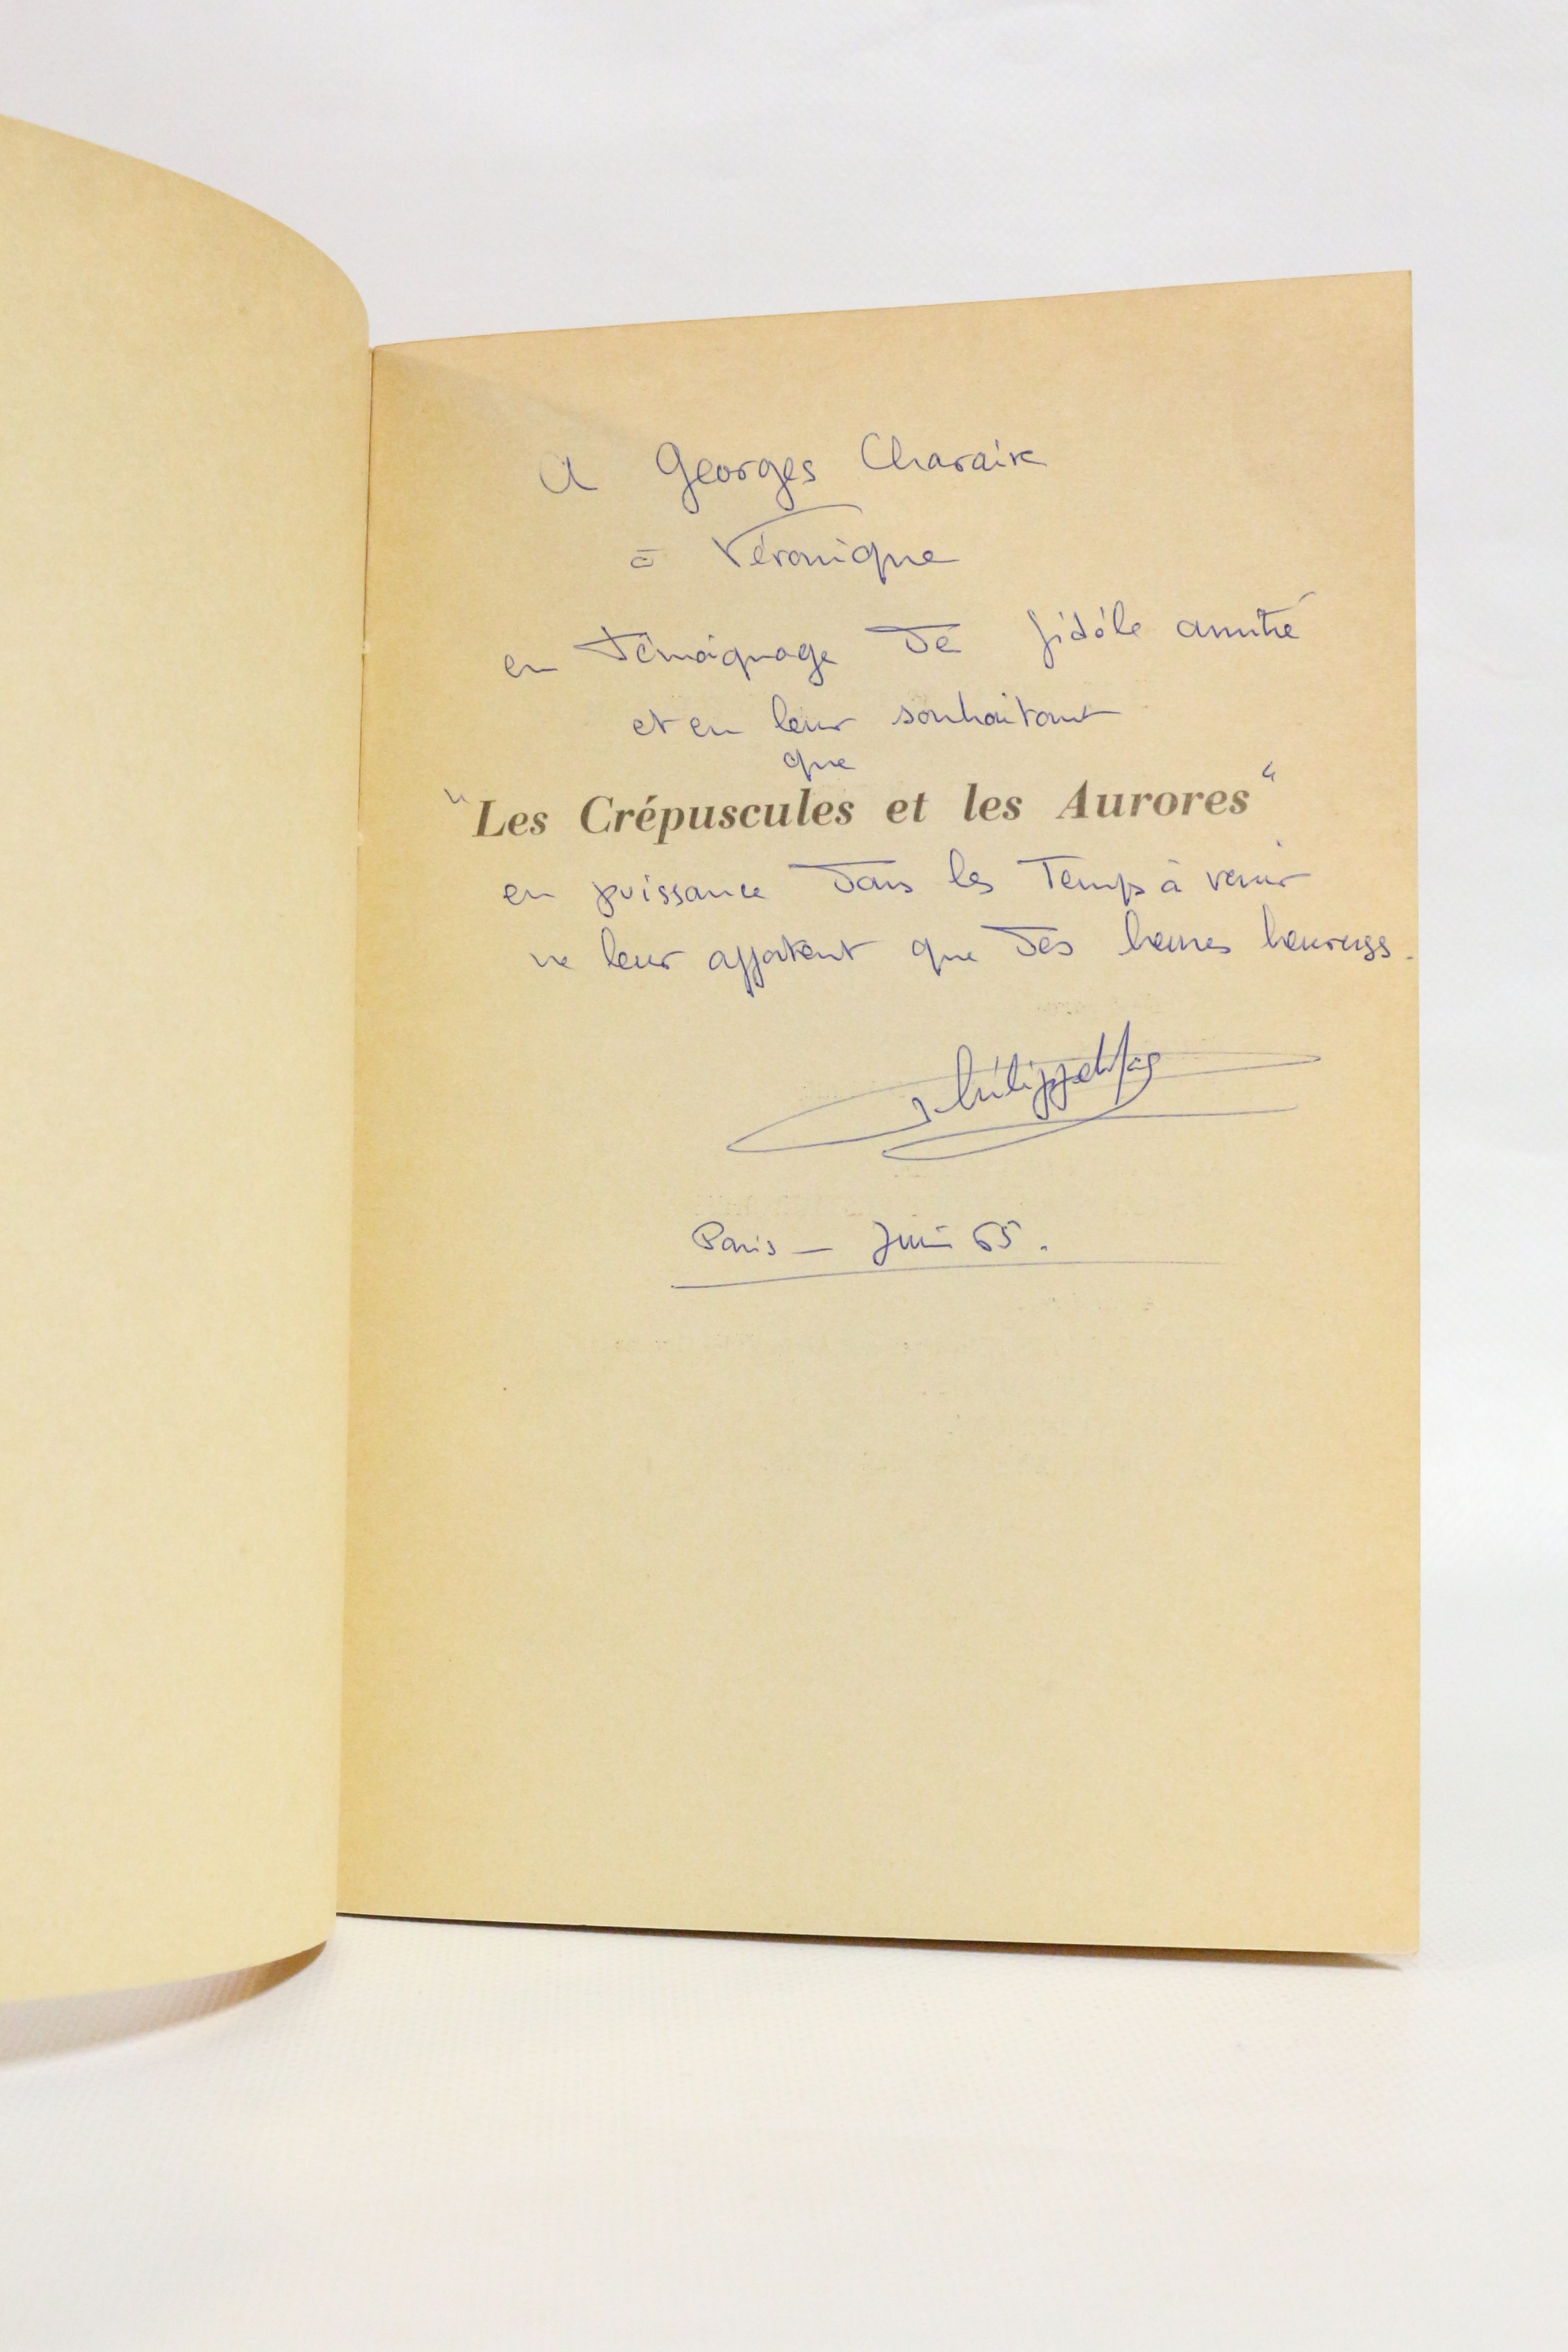 A Georges Charaire
à Véronique
en témoignage de fidèle amitié
et en leur souhaitant
que
"Les Crépuscules et les Aurores"
en puissance dans les Temps à venir
ne leur apportent que des heures heureuses.
Paris — Juin 65.